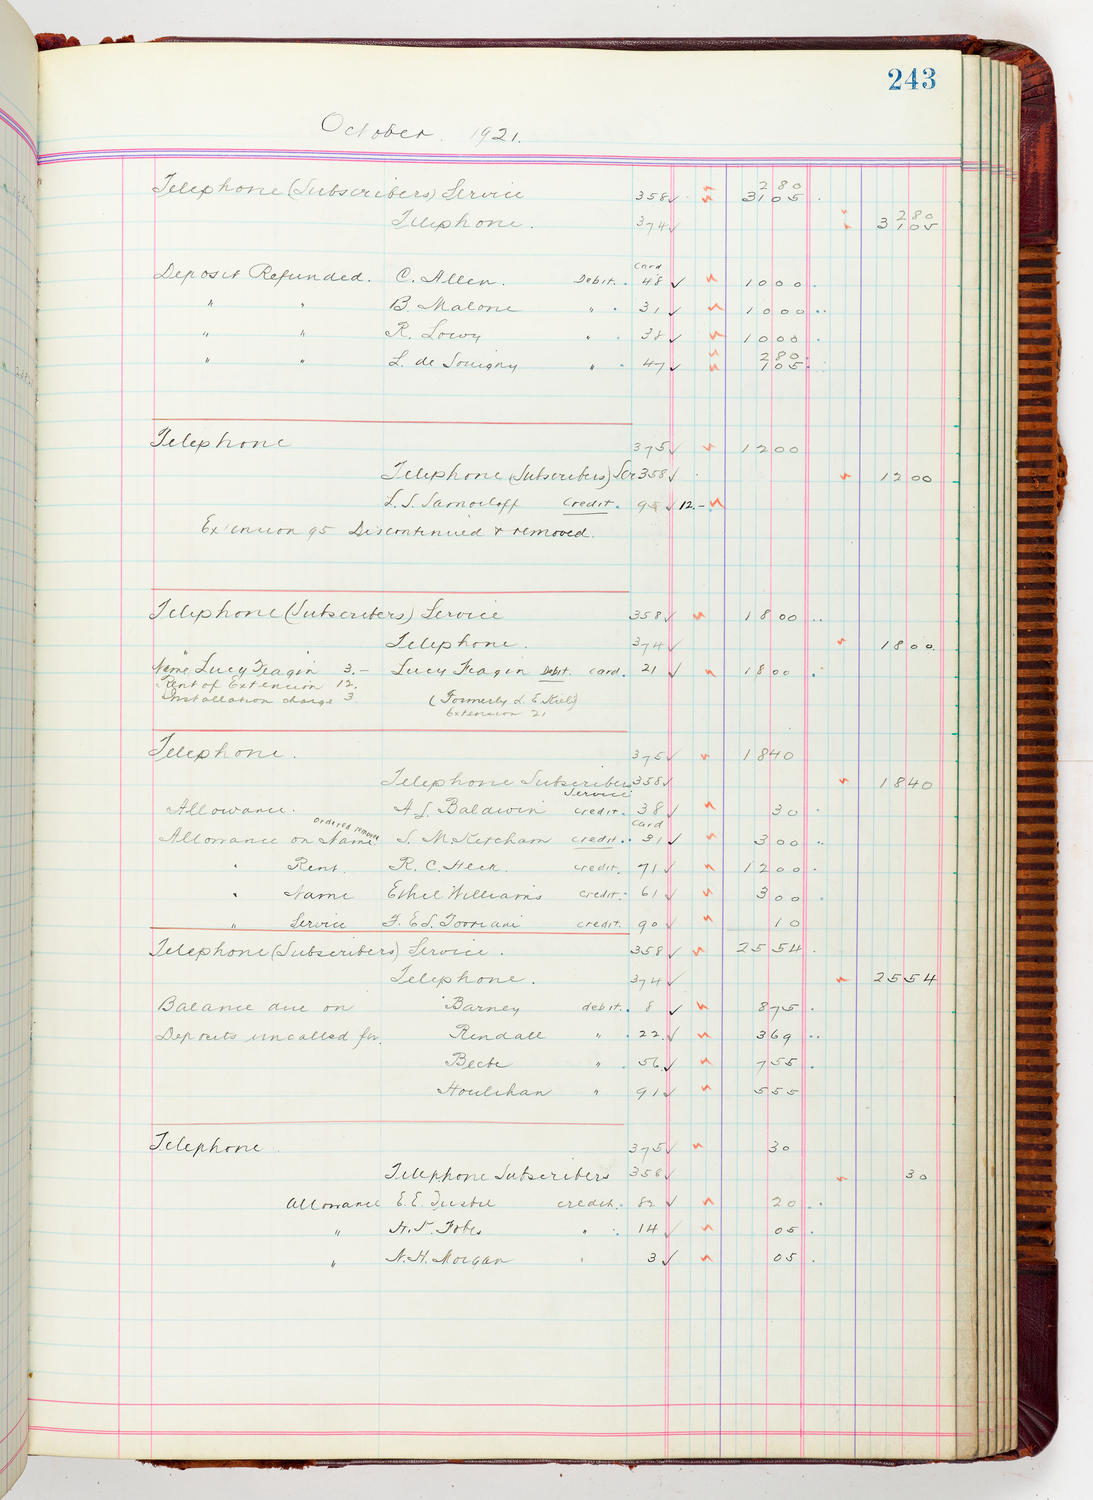 243
October. 1921.
Telephone (Subscribers) Service 358 ✓ 280 3105
Telephone. 374 ✓ 280 3105
Card
Deposit Refunded. C. Allen. Debit. 48 ✓ 1000
" " B. Malone " 31 ✓ 1000
" " R. Lowy " 38 ✓ 1000
" " L. de Souigny " 47 ✓ 280 105
Telephone 375 ✓ 1200
Telephone (Subscribers) Ser 358 ✓ 1200
L. S. Samoiloff Credit. 95 ✓ 12.-
Extension 95 Discontinued & removed.
Telephone (Subscribers) Service 358 ✓ 1800
Telephone. 374 ✓ 1800
Name Lucy Feagin 3.- Lucy Feagin Debit. card. 21 ✓ 1800
Rent of Extension 12.
Installation charge 3. (Formerly L. E. Kiel)
Extension 21
Telephone. 375 ✓ 1840
Telephone Subscribers 358 ✓ 1840
Service
Allowance. A. J. Baldwin credit. 38 ✓ 30
ordered removed card
Allowance on Name. S. McKetcham credit. 31 ✓ 300
" Rent. R. C. Heck. credit. 71 ✓ 1200
" Name Ethel Williams credit. 61 ✓ 300
" Service F. E. S. Torriani credit. 90 ✓ 10
Telephone (Subscribers) Service. 358 ✓ 2554
Telephone. 374 ✓ 2554
Balance due on Barney debit. 8 ✓ 875
Deposits uncalled for. Rindall " 22. ✓ 369
Beebe " 56 ✓ 755
Houlihan " 91 ✓ 555
Telephone. 375 ✓ 30
Telephone Subscribers 358 ✓ 30
Allowance E. E. credit. 82 ✓ 20
" Fobes " 14 ✓ 05
" N. H. Morgan " 3 ✓ 05